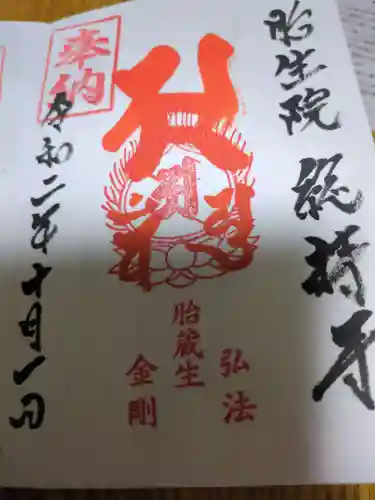 胎生院
総持寺
奉納
胎蔵生
弘法
金剛
令和二年十月一日